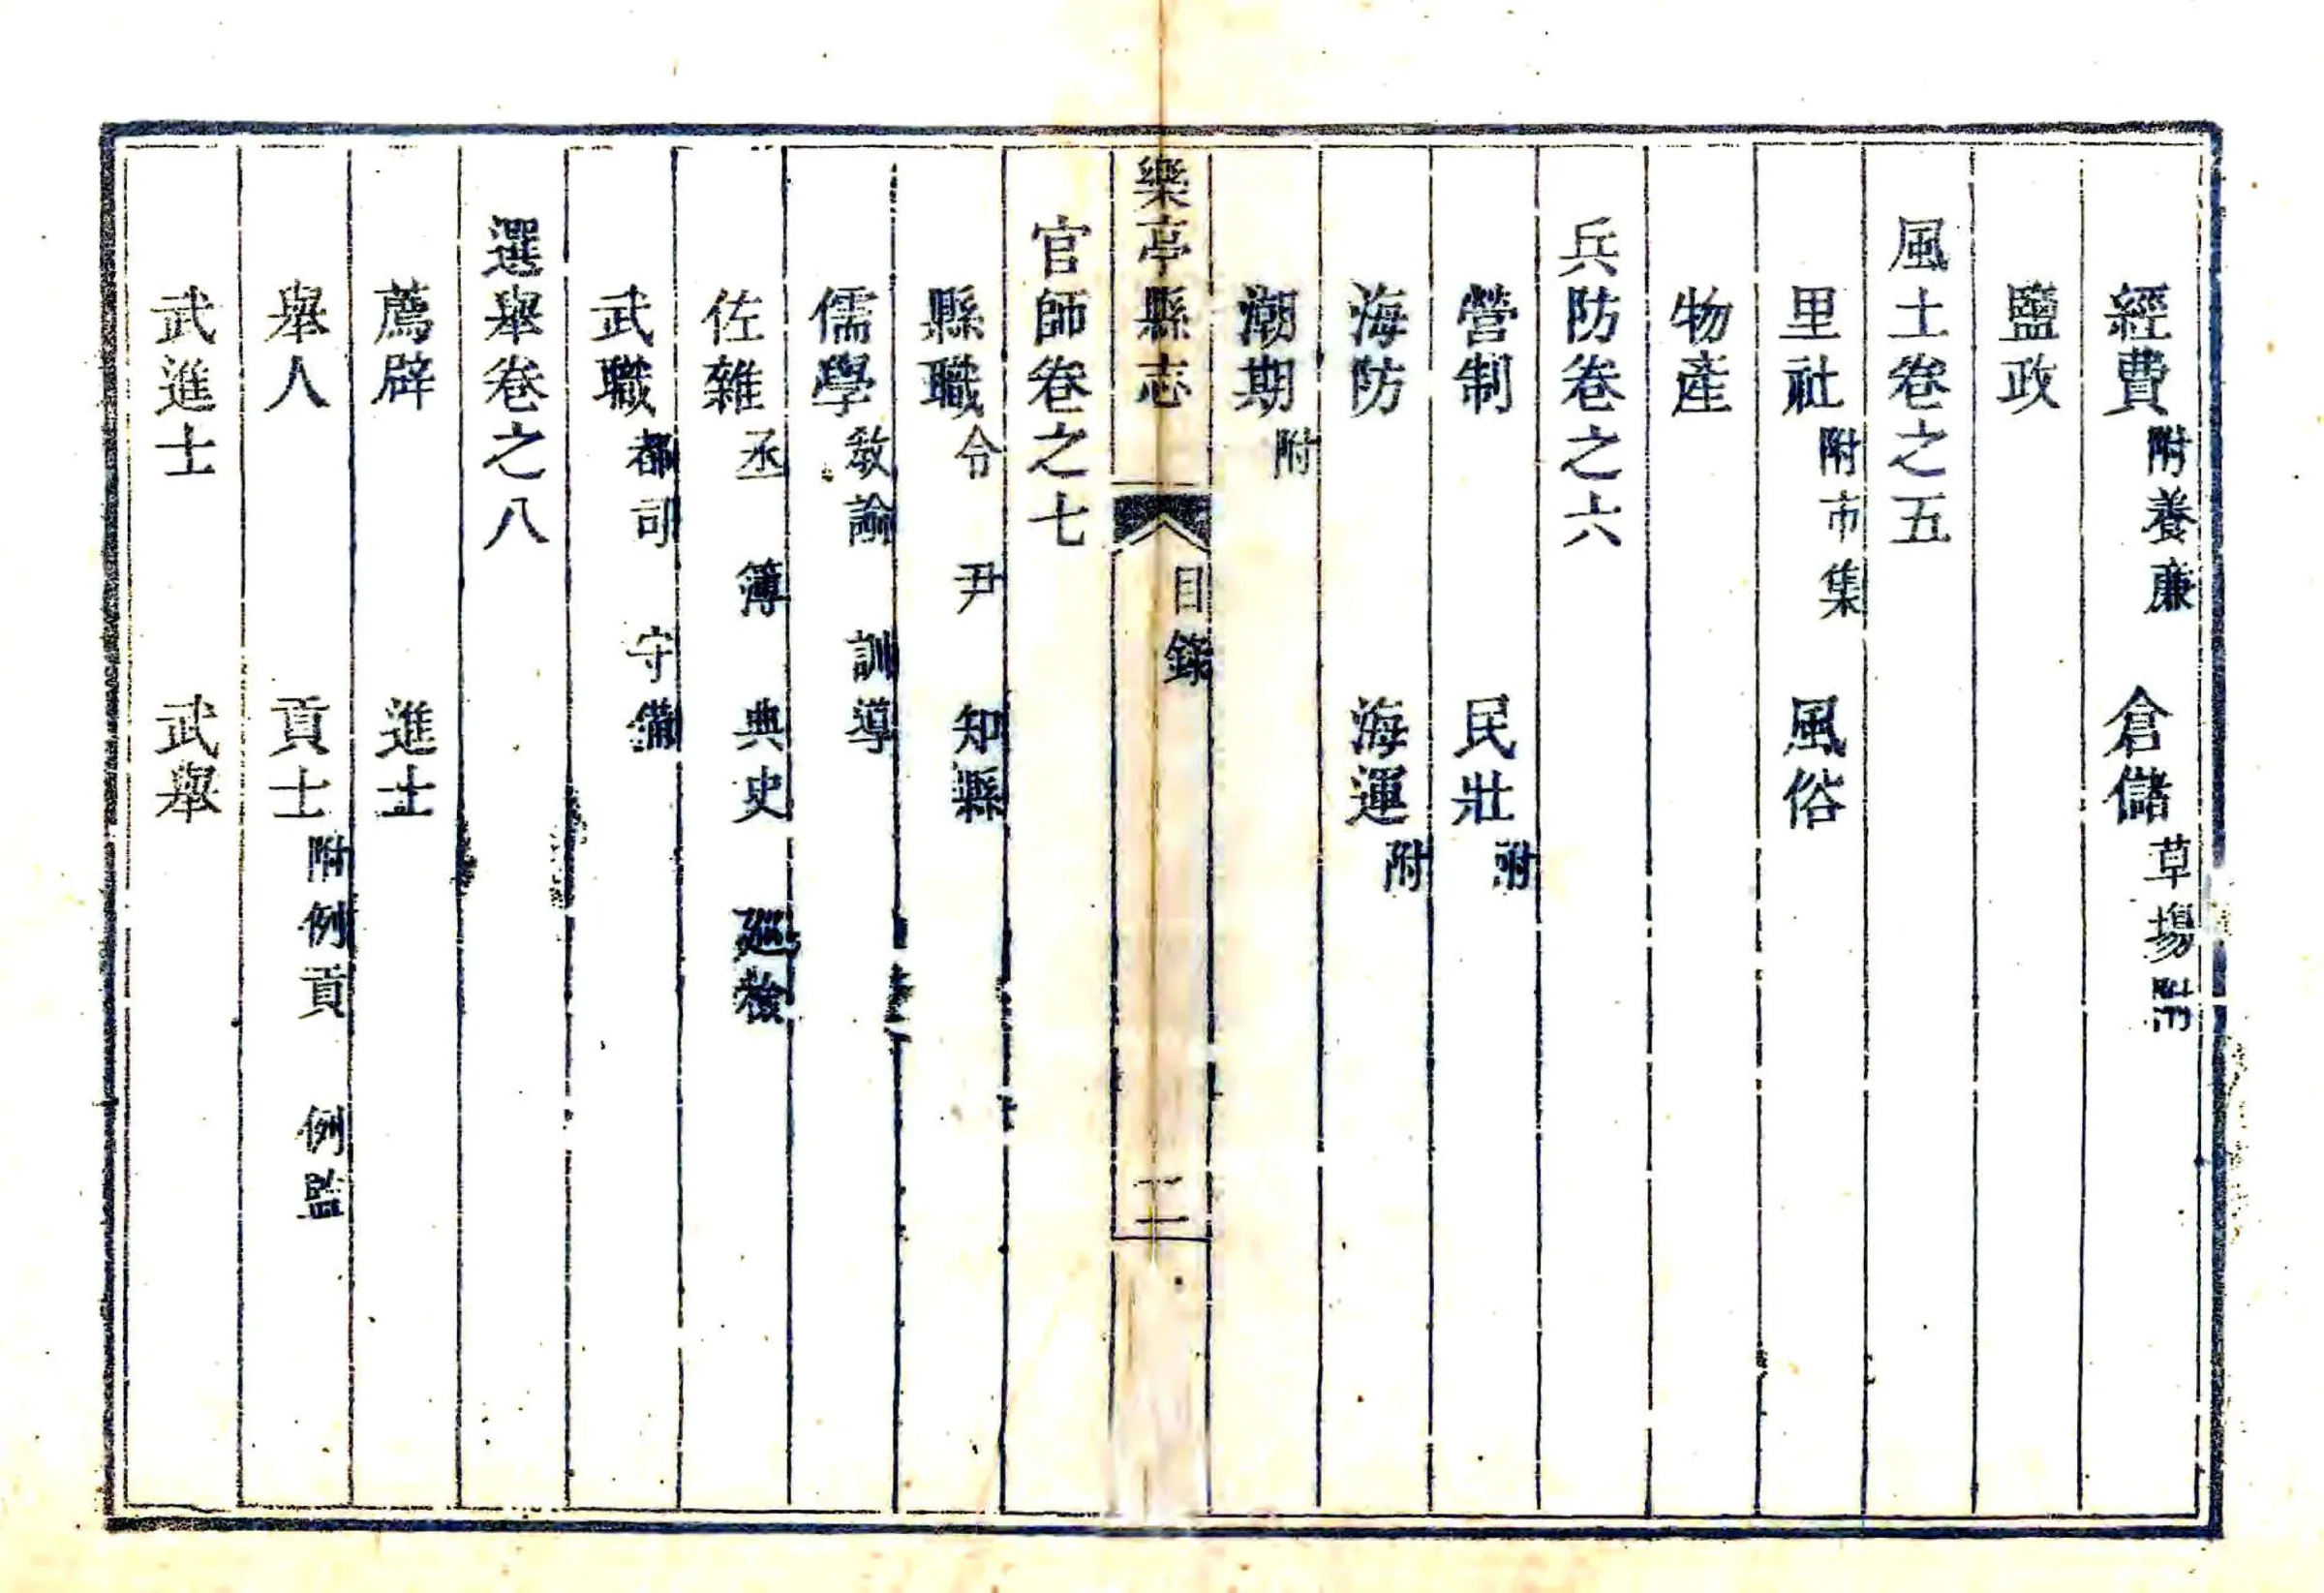 經費附養廉 倉儲草塲附
鹽政
風土卷之五
里社附市集 風俗
物產
兵防卷之六
營制 民壯附
海防 海運附
潮期附
樂亭縣志 目錄 二
官師卷之七
縣職令 尹 知縣
儒學教諭 訓導
佐雜丞 簿 典史 廵檢
武職都司 守備
選舉卷之八
薦辟 進士
舉人 貢士附例貢 例監
武進士 武舉